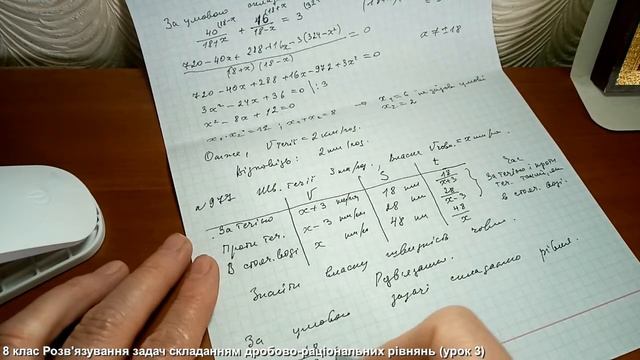 За умовою склад
40^(18-x) / 18+x + 16^(18+x) / 18-x = 3
720-40x+288+16x-3(324-x²) / (18+x)(18-x) = 0
x ≠ ±18
720-40x+288+16x-972+3x²=0
3x²-24x+36=0 |:3
x²-8x+12=0
x₁·x₂=12; x₁+x₂=8 → x₁=6 не задов. умові
x₂=2
Отже, V течії = 2 км/год.
Відповідь: 2 км/год.
№ 971 Шв. течії 3 км/год, власна V човн. = x км/год
V S t
За течією x+3 км/год 18 км 18/x+3
Проти теч. x-3 км/год 28 км 28/x-3
В стояч. воді x км/год 48 км 48/x
Час за течією і проти теч. такий, як в стояч. воді.
Знайти власну швидкість човна.
Розв'язання.
За умовою задачі складаємо рівнян.
8 клас Розв'язування задач складанням дробово-раціональних рівнянь (урок 3)